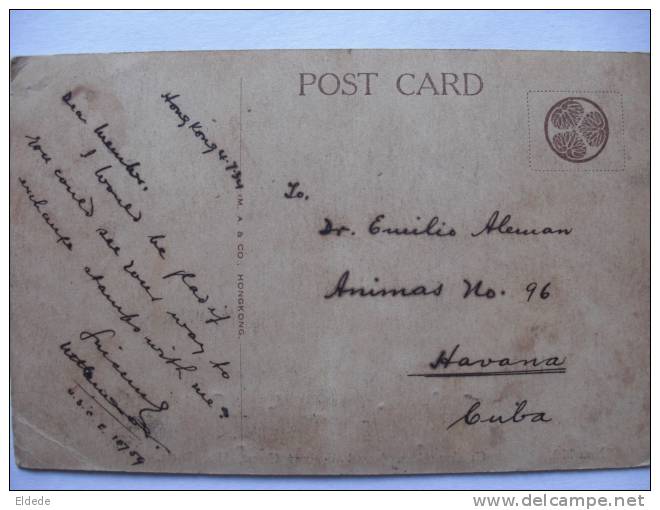 POST CARD
Hong Kong 4.7.34
Dear Member,
I would be glad if
you could see your way to
exchange stamps with me
Sincerely
To.
Dr. Emilio Aleman
Animas No. 96
Havana
Cuba
M. A. & CO. HONGKONG.
Eldede
delcampe.net